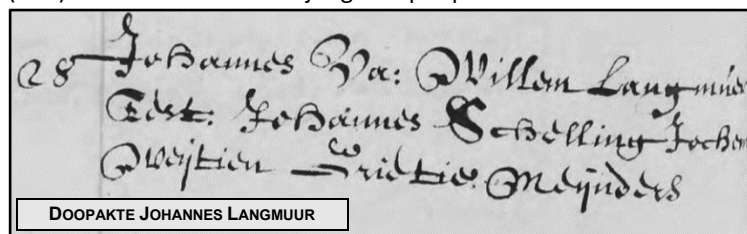 28 Johannes Va: Willem Langmuer
Test: Johannes Schelling Jochem
Weijtien Grietie Meijnders
DOOPAKTE JOHANNES LANGMUUR